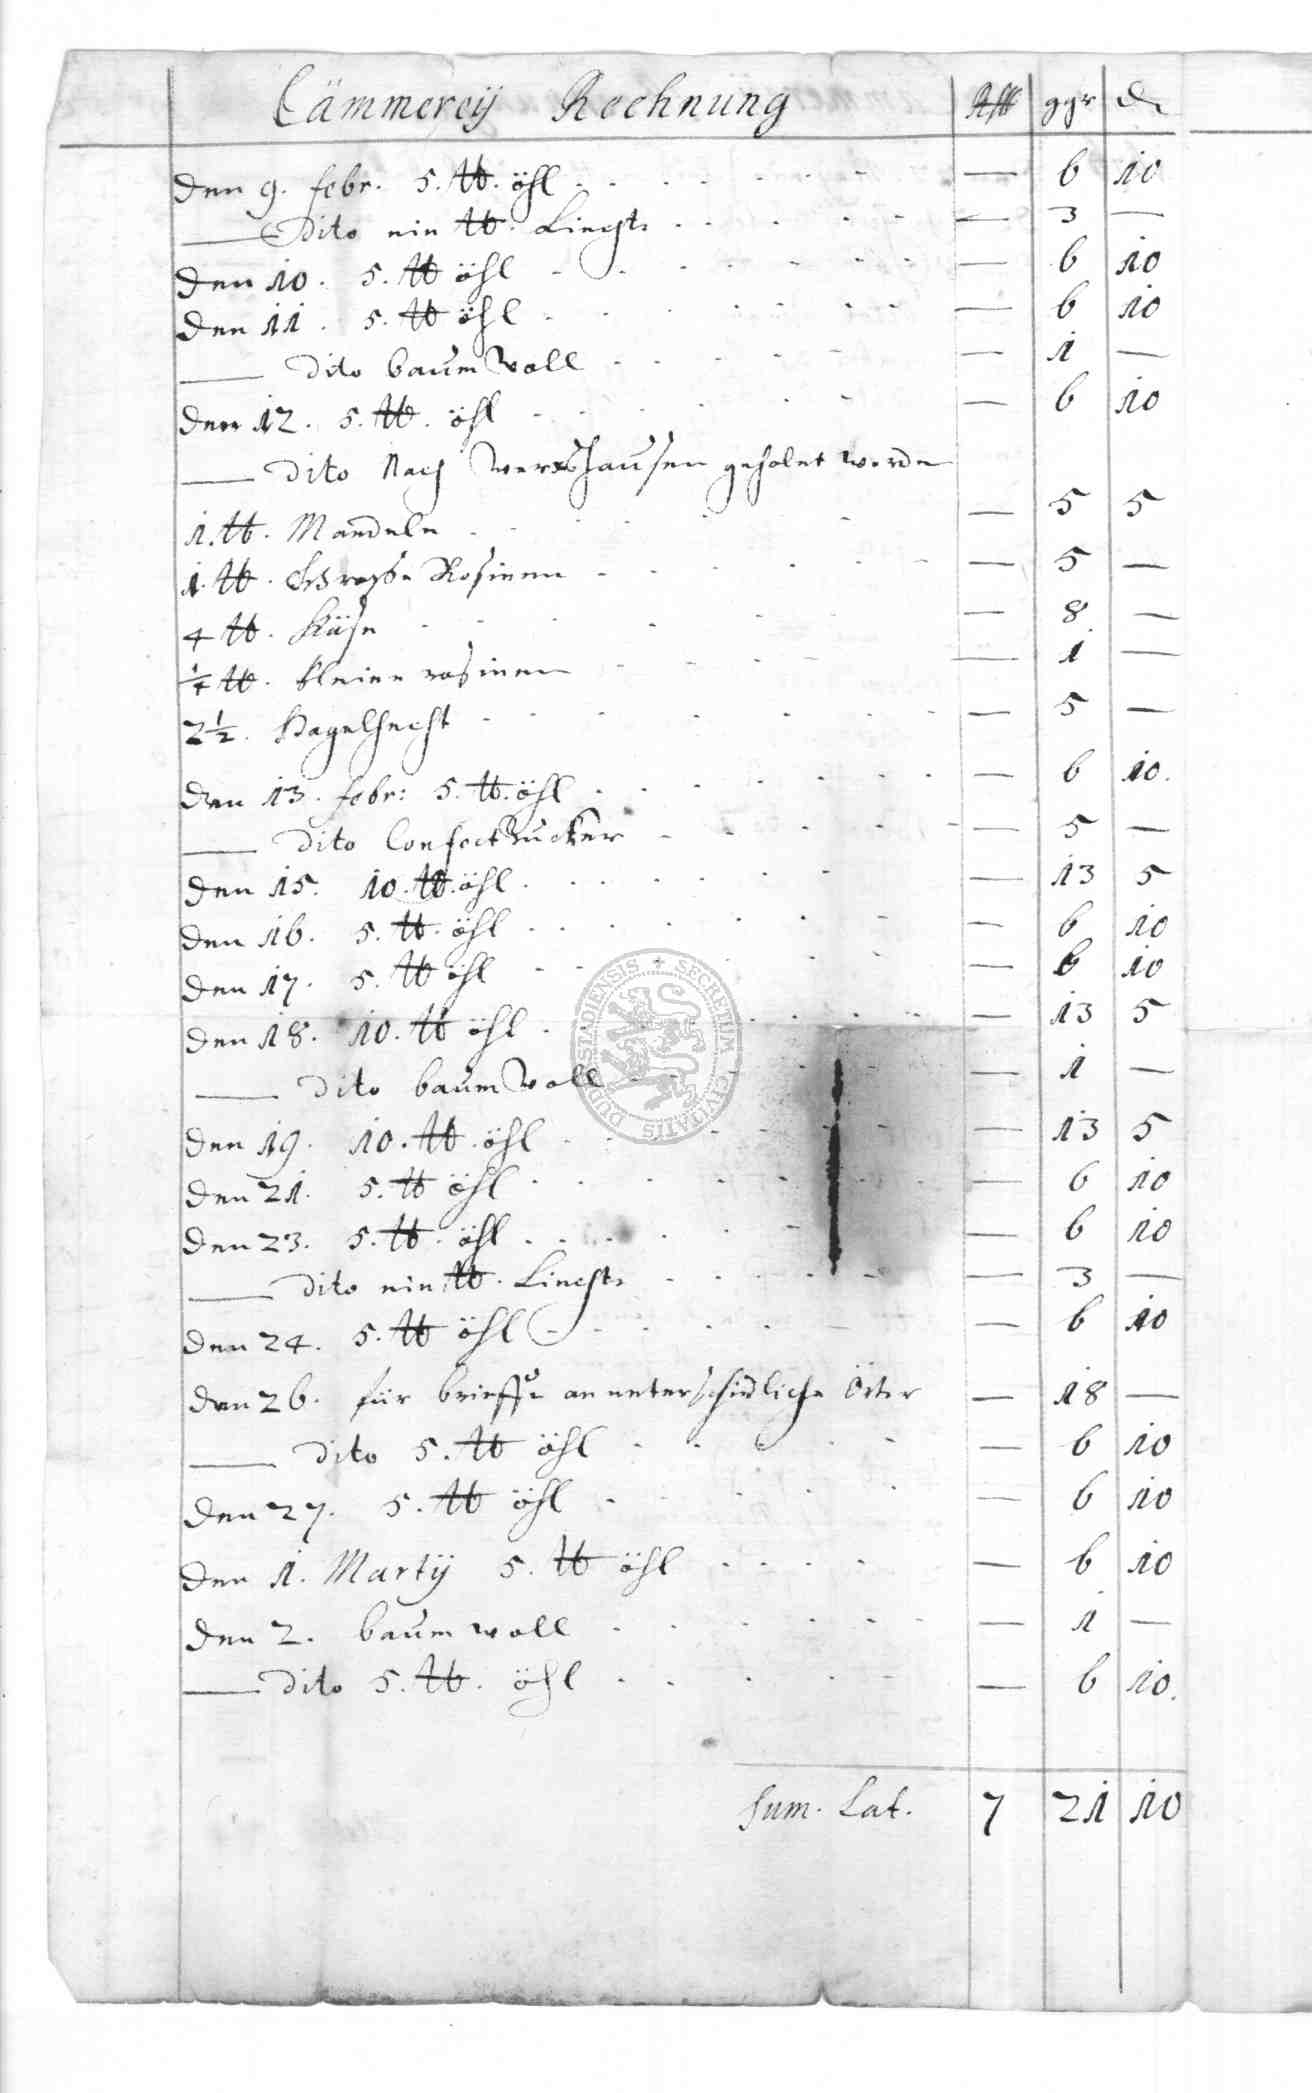 Cämmereÿ Rechnung Rthl ggr d
den 9. febr. 5. ℔. öhl — 6 10
— Dito ein ℔. Liecht — 3 —
den 10. 5. ℔ öhl — 6 10
den 11. 5. ℔ öhl — 6 10
— Dito baum Woll — 1 —
den 12. 5. ℔. öhl — 6 10
— Dito Nach Werxhausen geholet worde
1. ℔. Mandeln — 5 5
1. ℔. Grosse Rosinen — 5 —
4 ℔. Käse — 8 —
¼ ℔. kleine rosinen — 1 —
2½. Hagelhecht — 5 —
den 13. febr: 5. ℔. öhl — 6 10.
— Dito Confect Zucker — 5 —
den 15. 10. ℔. öhl — 13 5
den 16. 5. ℔. öhl — 6 10
den 17. 5. ℔ öhl — 6 10
den 18. 10. ℔ öhl — 13 5
— Dito baum Woll — 1 —
den 19. 10. ℔. öhl — 13 5
den 21. 5. ℔ öhl — 6 10
den 23. 5. ℔. öhl — 6 10
— Dito ein ℔. Liecht — 3 —
den 24. 5. ℔ öhl — 6 10
den 26. für brieffe an unterschidliche Örter — 18 —
— Dito 5. ℔ öhl — 6 10
den 27. 5. ℔ öhl — 6 10
den 1. Martÿ 5. ℔ öhl — 6 10
den 2. baum woll — 1 —
— Dito 5. ℔. öhl — 6 10.
Sum. Lat. 7 21 10
SECRETUM CIVITATIS DUDERSTADIENSIS